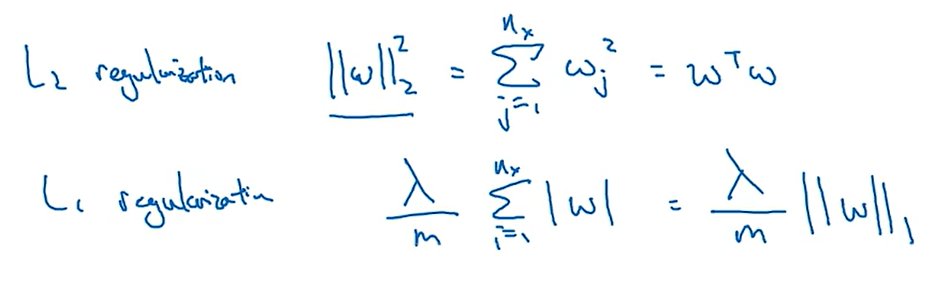 L₂ regularization ||w||₂² = Σ_{j=1}^{nₓ} wⱼ² = wᵀw
L₁ regularization λ/m Σ_{i=1}^{nₓ} |w| = λ/m ||w||₁